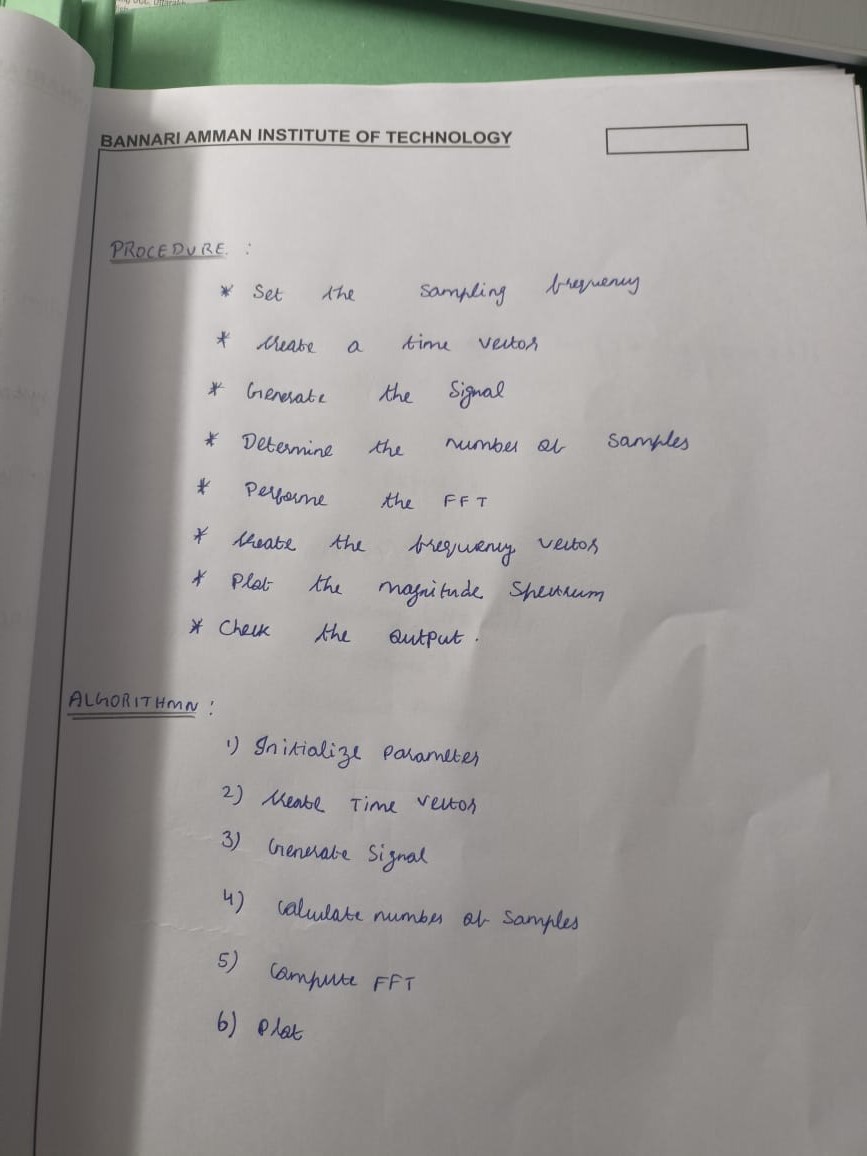 BANNARI AMMAN INSTITUTE OF TECHNOLOGY
PROCEDURE :
* Set the Sampling frequency
* Create a time vector
* Generate the Signal
* Determine the number of Samples
* Performe the FFT
* Create the frequency vector
* Plot the magnitude Spectrum
* Check the output .
ALGORITHMN :
1) Initialize Parameter
2) Create Time vector
3) Generate Signal
4) Calculate number of Samples
5) Compute FFT
6) Plot